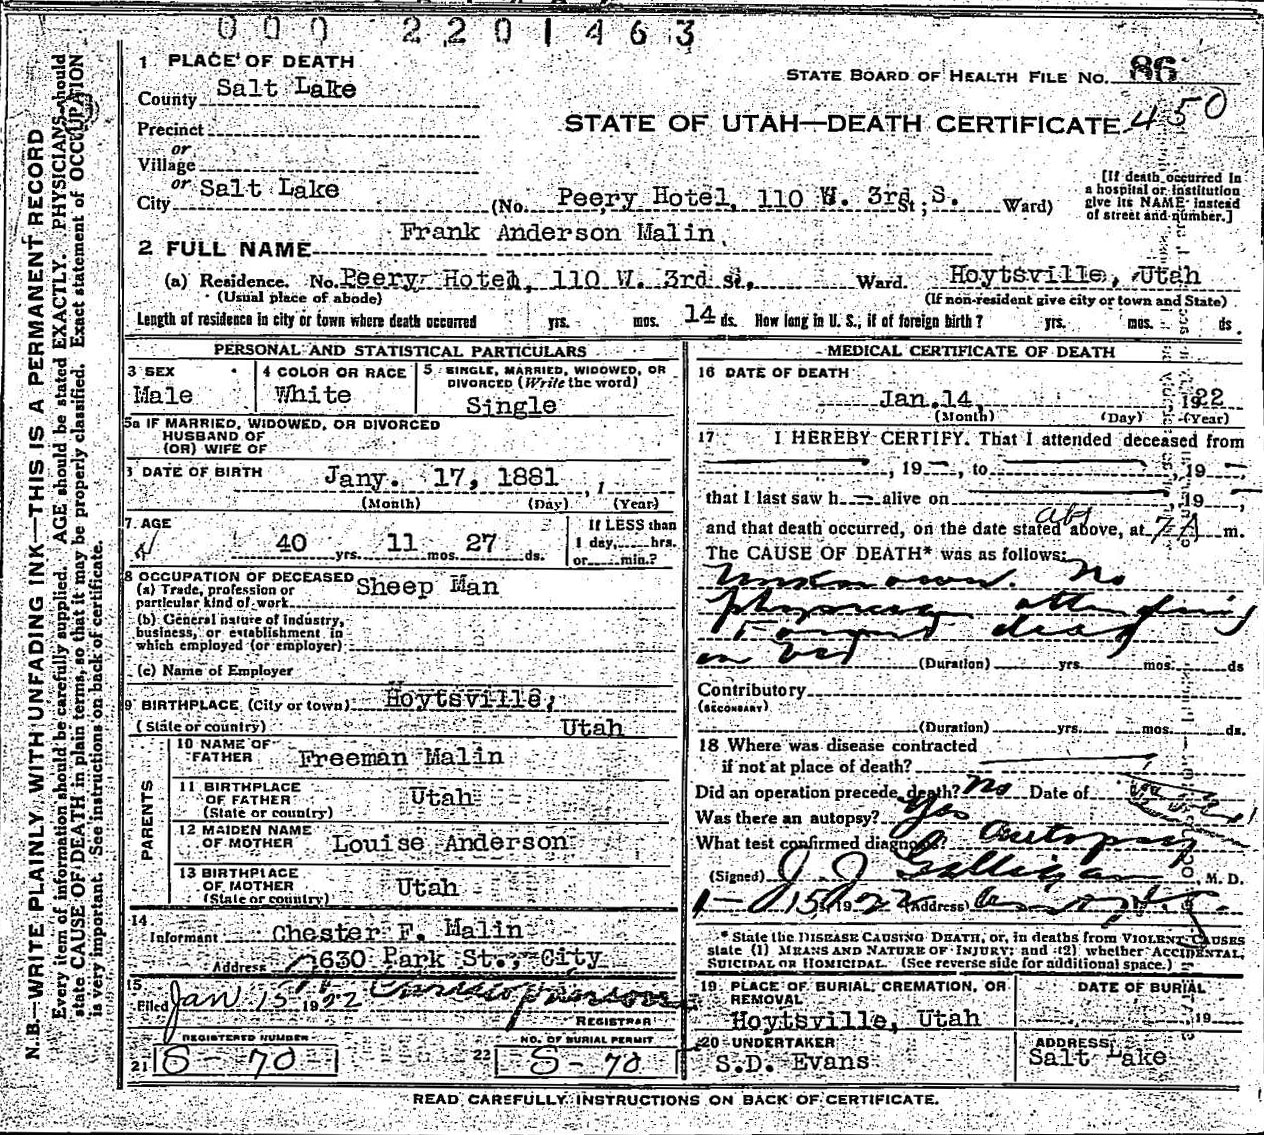 000 2201463
1 PLACE OF DEATH
STATE BOARD OF HEALTH FILE NO. 86
County Salt Lake
450
STATE OF UTAH—DEATH CERTIFICATE
Precinct
or
Village
or
City Salt Lake
(No. Peery Hotel, 110 W. 3rd St; S. Ward)
[If death occurred in
a hospital or institution
give its NAME instead
of street and number.]
2 FULL NAME Frank Anderson Malin
(a) Residence. No. Peery Hotel, 110 W. 3rd St, Ward. Hoytsville, Utah
(Usual place of abode) (If non-resident give city or town and State)
Length of residence in city or town where death occurred yrs. mos. 14 ds. How long in U. S., if of foreign birth? yrs. mos. ds.
PERSONAL AND STATISTICAL PARTICULARS
3 SEX
Male
4 COLOR OR RACE
White
5 SINGLE, MARRIED, WIDOWED, OR
DIVORCED (Write the word)
Single
5a IF MARRIED, WIDOWED, OR DIVORCED
HUSBAND OF
(OR) WIFE OF
DATE OF BIRTH
Jany. 17, 1881
(Month) (Day) (Year)
7. AGE
40 yrs. 11 mos. 27 ds.
If LESS than
1 day, hrs.
or min.?
8 OCCUPATION OF DECEASED
(a) Trade, profession or
particular kind of work Sheep Man
(b) General nature of industry,
business, or establishment in
which employed (or employer)
(c) Name of Employer
9 BIRTHPLACE (City or town) Hoytsville,
(State or country) Utah
PARENTS
10 NAME OF
FATHER Freeman Malin
11 BIRTHPLACE
OF FATHER Utah
(State or country)
12 MAIDEN NAME
OF MOTHER Louise Anderson
13 BIRTHPLACE
OF MOTHER Utah
(State or country)
14
Informant Chester F. Malin
Address 630 Park St., City
15
Filed Jan 15 1922
REGISTRAR
REGISTERED NUMBER
21 S-70
NO. OF BURIAL PERMIT
22 S-70
MEDICAL CERTIFICATE OF DEATH
16 DATE OF DEATH
Jan. 14, 1922
(Month) (Day) (Year)
17 I HEREBY CERTIFY. That I attended deceased from
, 19 , to , 19
that I last saw h alive on , 19 ,
and that death occurred, on the date stated above, at abt 7 A m.
The CAUSE OF DEATH* was as follows:
Unknown. No
physician attending
Found dead
in bed
(Duration) yrs. mos. ds
Contributory
(SECONDARY)
(Duration) yrs. mos. ds.
18 Where was disease contracted
if not at place of death?
Did an operation precede death? No Date of
Was there an autopsy? Yes
What test confirmed diagnosis? Autopsy
(Signed) J. J. Galligan M. D.
1-15, 1922 (Address)
* State the DISEASE CAUSING DEATH, or, in deaths from VIOLENT CAUSES
state (1) MEANS AND NATURE OF INJURY; and (2) whether ACCIDENTAL,
SUICIDAL OR HOMICIDAL. (See reverse side for additional space.)
19 PLACE OF BURIAL, CREMATION, OR
REMOVAL
Hoytsville, Utah
DATE OF BURIAL
19
20 UNDERTAKER
S.D. Evans
ADDRESS
Salt Lake
READ CAREFULLY INSTRUCTIONS ON BACK OF CERTIFICATE.
N.B.—WRITE PLAINLY, WITH UNFADING INK—THIS IS A PERMANENT RECORD
Every item of information should be carefully supplied. AGE should be stated EXACTLY. PHYSICIANS should
state CAUSE OF DEATH in plain terms, so that it may be properly classified. Exact statement of OCCUPATION
is very important. See instructions on back of certificate.